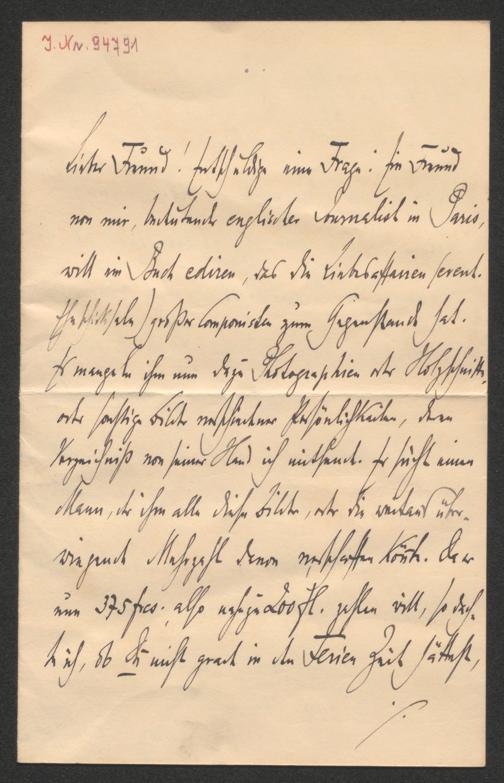 J. Nr. 94791
Lieber Freund! Entschuldige eine Frage: Ein Freund
von mir, bedeutender englischer Journalist in Paris,
will ein Buch ediren, das die Liebesaffairen (event.
Eheschicksale) großer Componisten zum Gegenstande hat.
Es mangeln ihm nun dazu Photographien oder Holzschnitte,
oder sonstige Bilder verschiedener Persönlichkeiten, deren
Verzeichniß von seiner Hand ich mitsende. Er sucht einen
Mann, der ihm alle diese Bilder, oder die weitaus über-
wiegende Mehrzahl davon verschaffen könnte. Da er
nun 375 frcs. also nahezu 200 fl. zahlen will, so dach-
te ich, ob Du nicht grade in den Ferien Zeit hättest,
./.